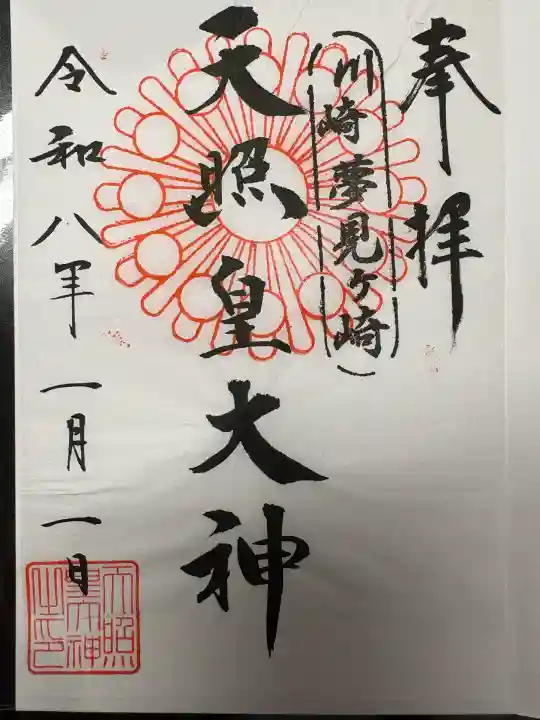 奉拝
(川崎夢見ヶ崎)
天照皇大神
令和八年一月一日
天照
皇大神
之印